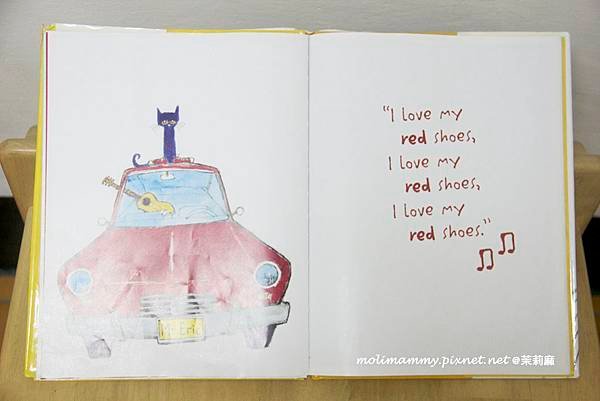 Mr. Eric
"I love my
red shoes,
I love my
red shoes,
I love my
red shoes."
molimammy.pixnet.net@茉莉麻